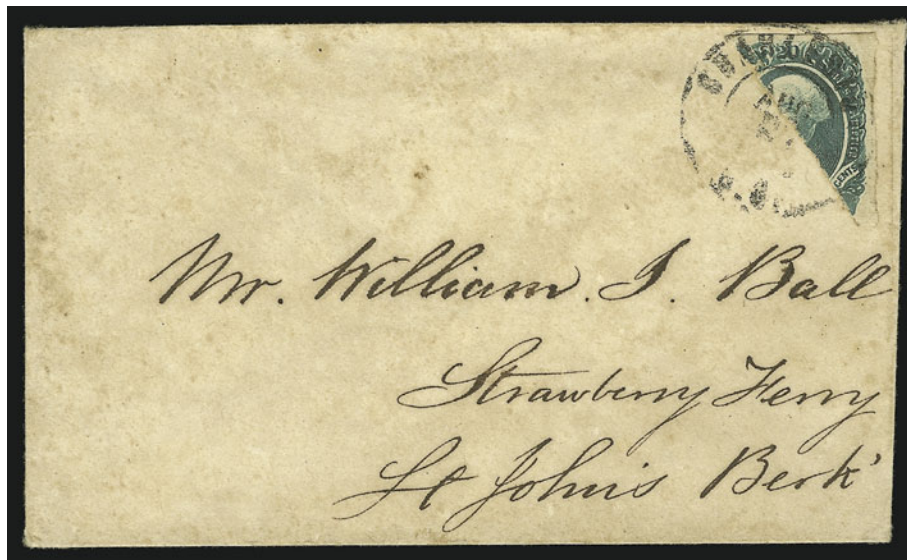 20
CENTS
Mr. William. J. Ball
Strawberry Ferry
St John's Berk'